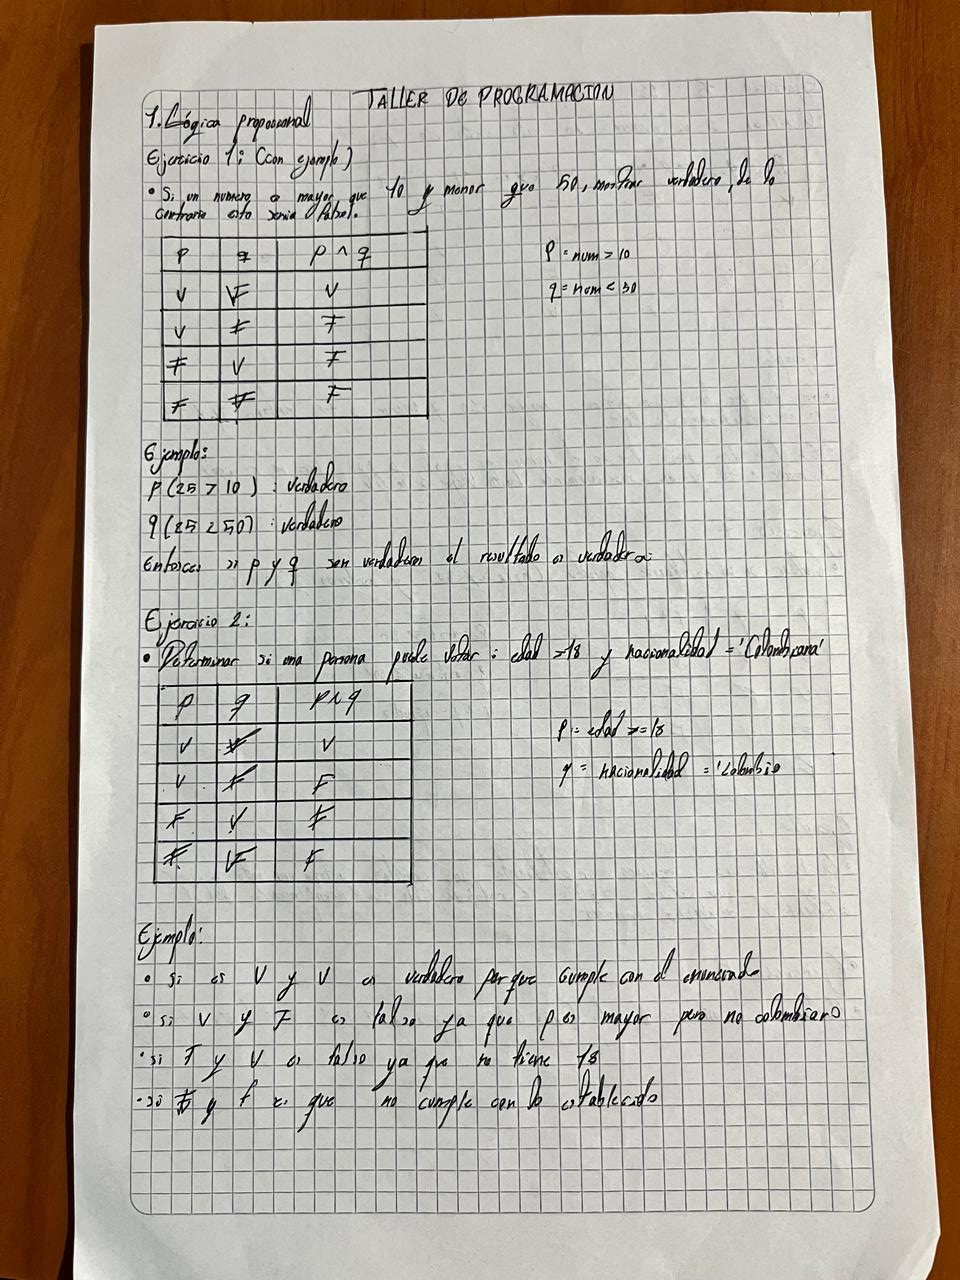 TALLER DE PROGRAMACION
1. Lógica proposicional
Ejercicio 1: (con ejemplo)
• Si un numero es mayor que 10 y menor que 50, mostrar verdadero, de lo
contrario esto seria falso.
p q p ∧ q
V V V
V F F
F V F
F F F
P = num > 10
q = num < 50
Ejemplo:
P (25 > 10) : verdadero
q (25 < 50) : verdadero
Entonces si p y q son verdaderos el resultado es verdadero.
Ejercicio 2:
• Determinar si una persona puede votar : edad >18 y nacionalidad = 'Colombiana'
P q P ∧ q
V V V
V F F
F V F
F F F
P = edad >= 18
q = nacionalidad = 'Colombia
Ejemplo:
• si es V y V es verdadero porque cumple con el enunciado
• si V y F es falso ya que p es mayor pero no colombiano
• si F y V es falso ya que no tiene 18
• si F y f es que no cumple con lo establecido